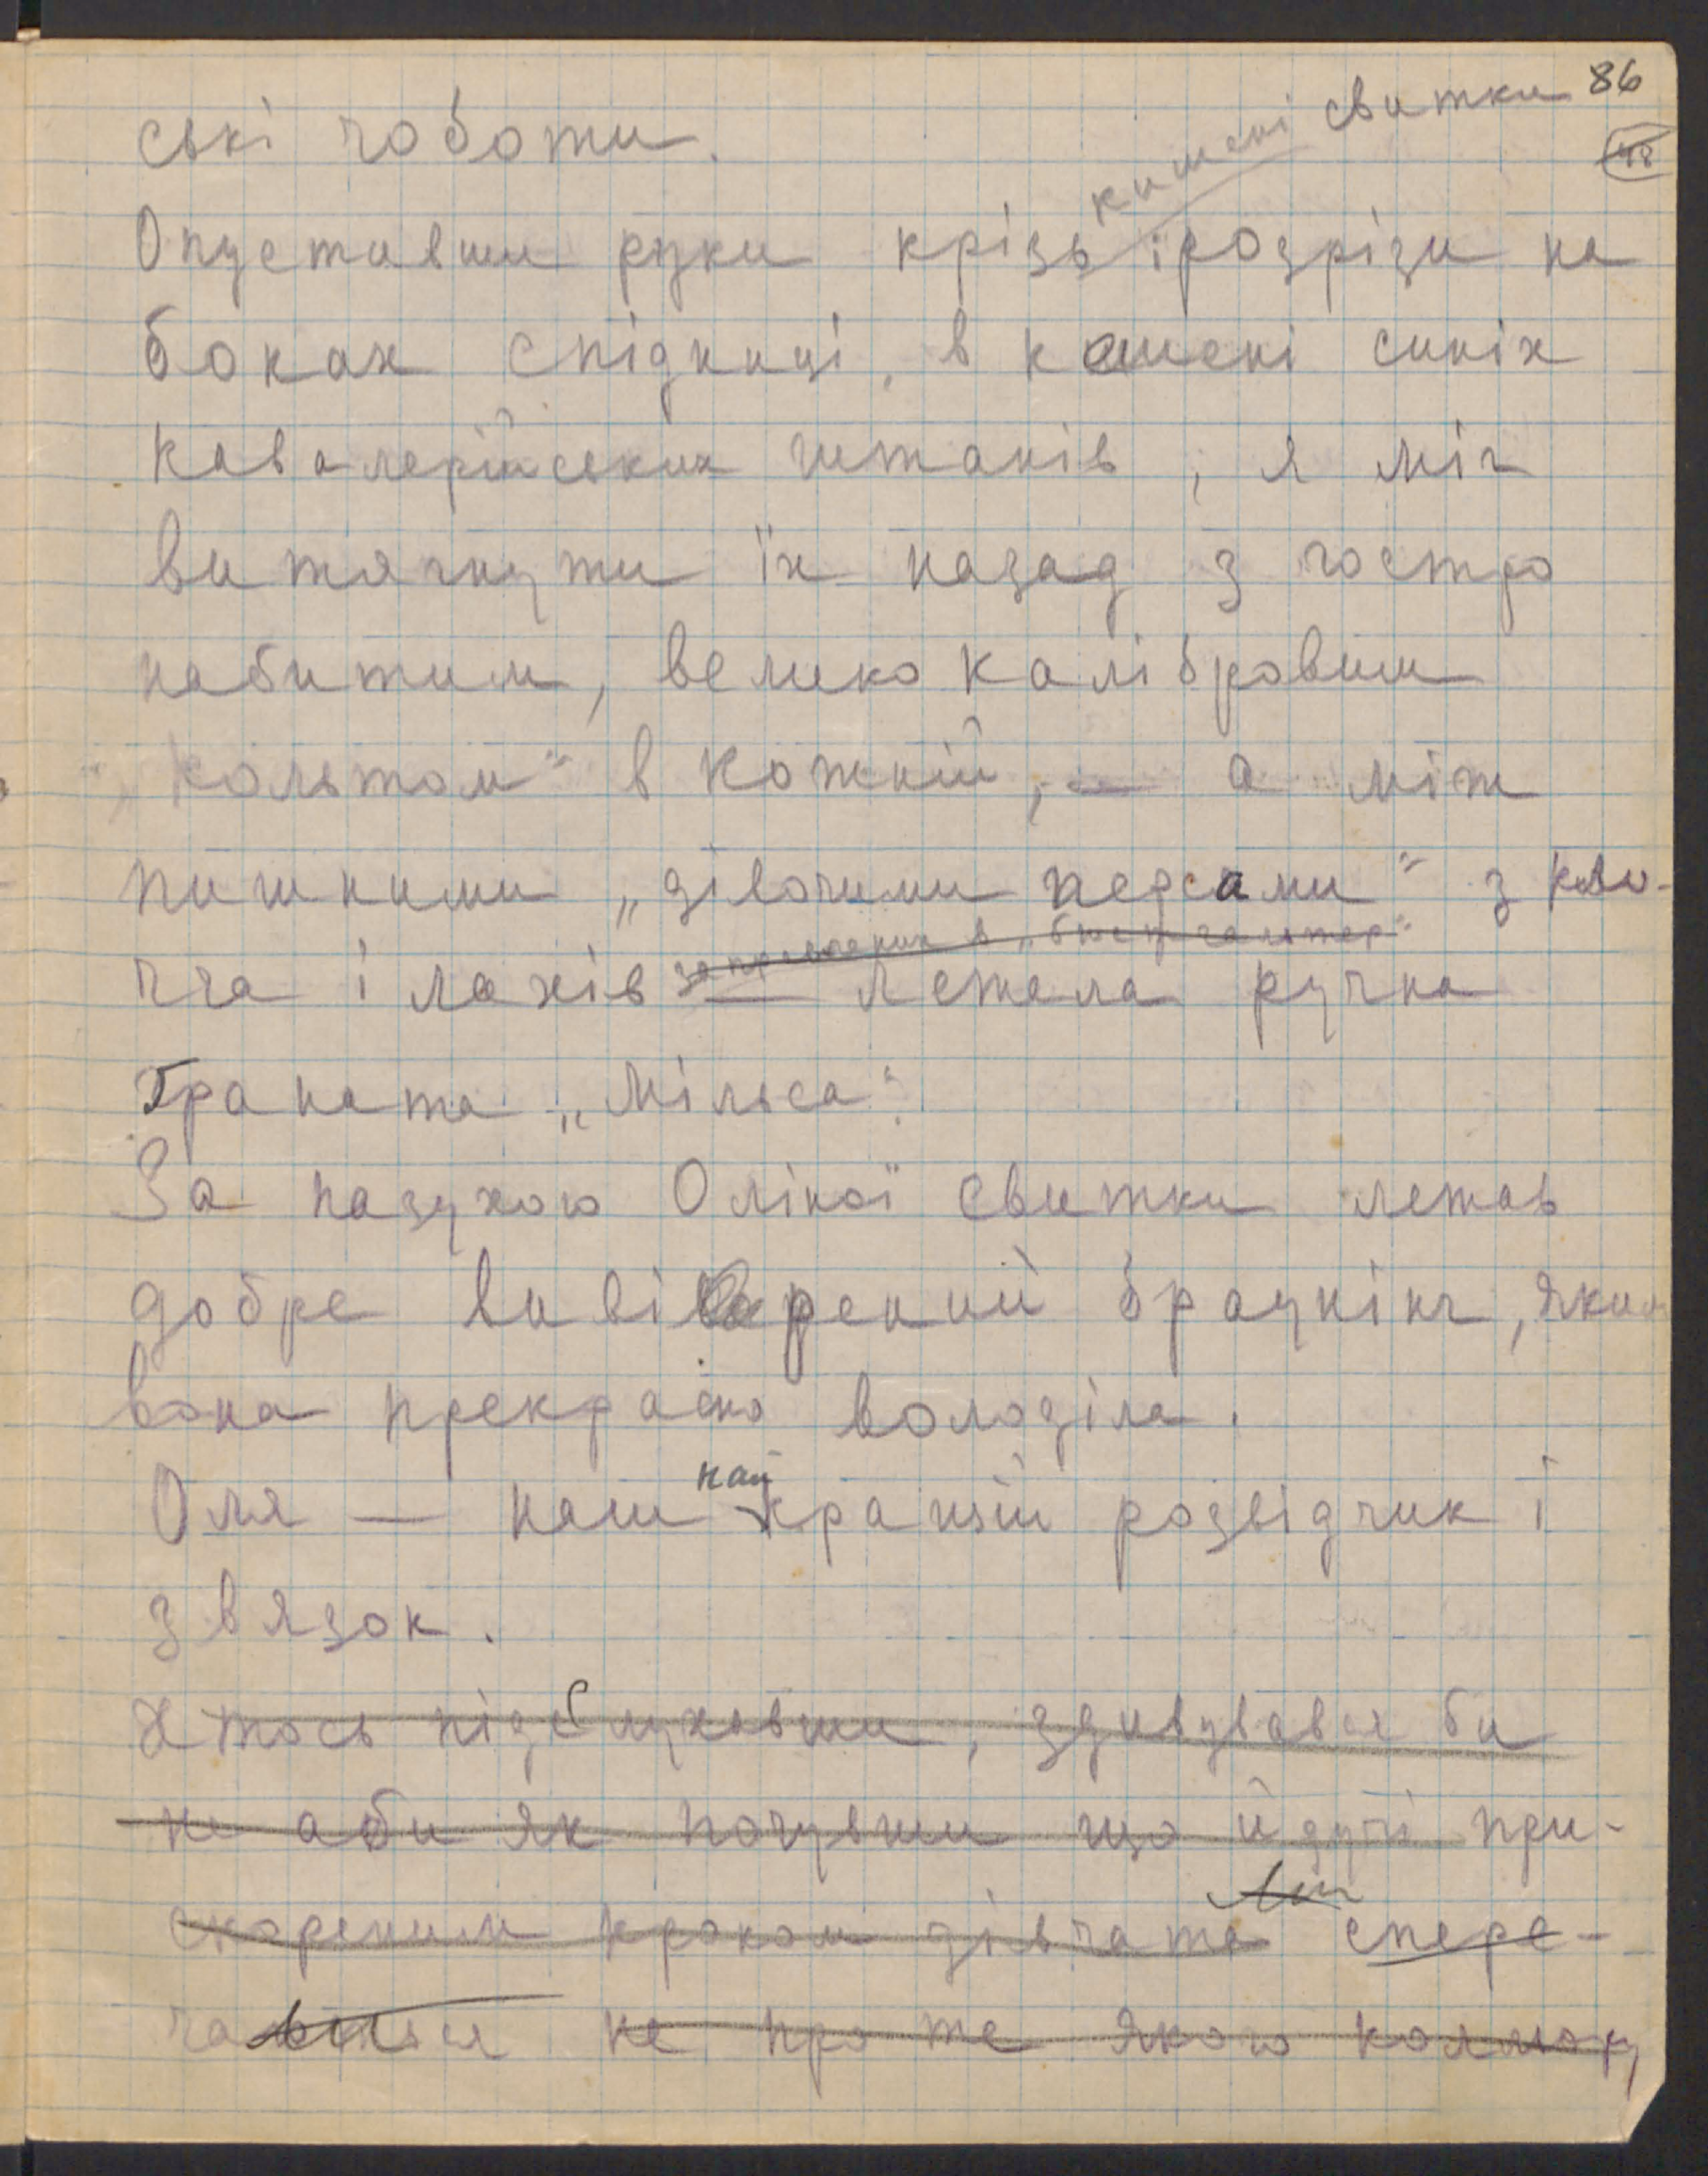 86
48
ські чоботи.
кишені свитки
Опустивши руки крізь і розрізи на
боках спідниці, в кишені синіх
кавалерійських штанів, я міг
витягнути їх назад з гостро
набитим, великокалібровим
„кольтом“ в кожній, — а між
пишними „дівочими персами“ з кло-
ччя і лахів
лежала ручна
Граната „Мільса“.
За пазухою Оліної свитки лежав
добре вивірений бравнінг, яким
вона прекрасно володіла.
Оля — наш найкращий розвідчик і
звязок.
Хтось підслухавши, здивувався би
не аби як почувши що йдучі при-
скореним кроком дівчата спере-
не про те якого кольору,